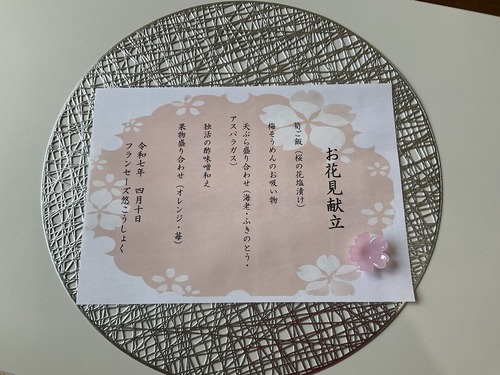 お花見献立
筍ご飯（桜の花塩漬け）
梅そうめんのお吸い物
天ぷら盛り合わせ（海老・ふきのとう・
アスパラガス）
独活の酢味噌和え
果物盛り合わせ（オレンジ・苺）
令和七年　四月十日
フランセーズ悠こうしょく